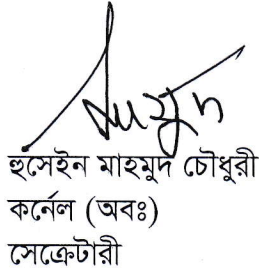 হুসেইন মাহমুদ চৌধুরী
কর্নেল (অবঃ)
সেক্রেটারী